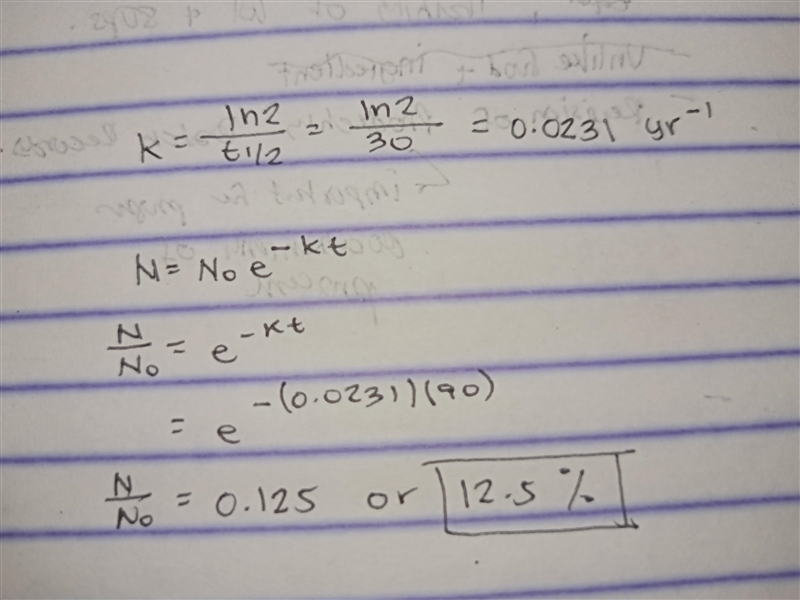 K = ln2/t1/2 = ln2/30 = 0.0231 yr⁻¹
N = N₀ e^(-kt)
N/N₀ = e^(-kt)
= e^(-(0.0231)(90))
N/N₀ = 0.125 or 12.5 %